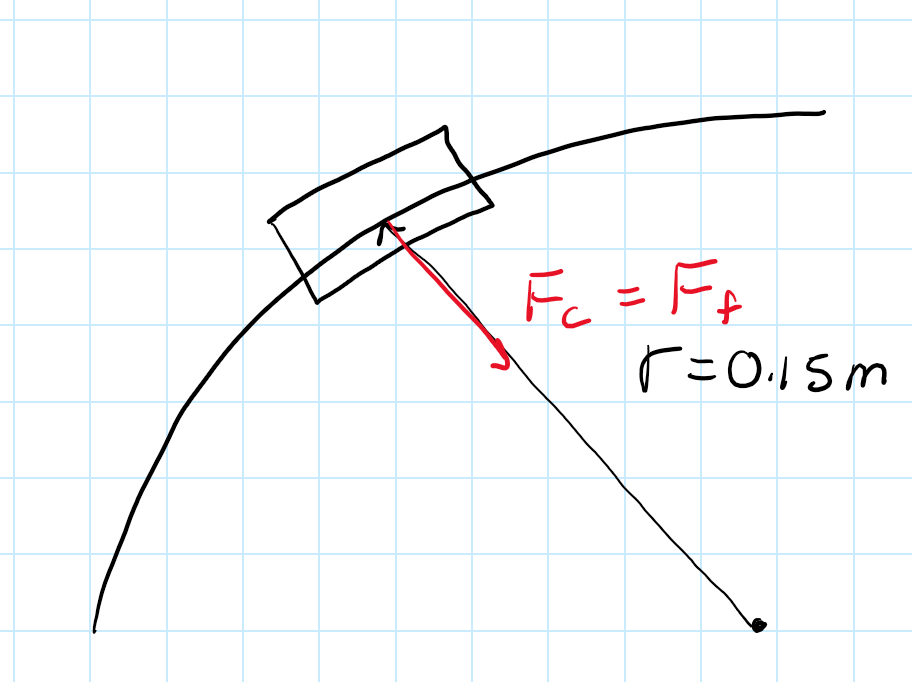 Fc = Ff
r = 0.15m